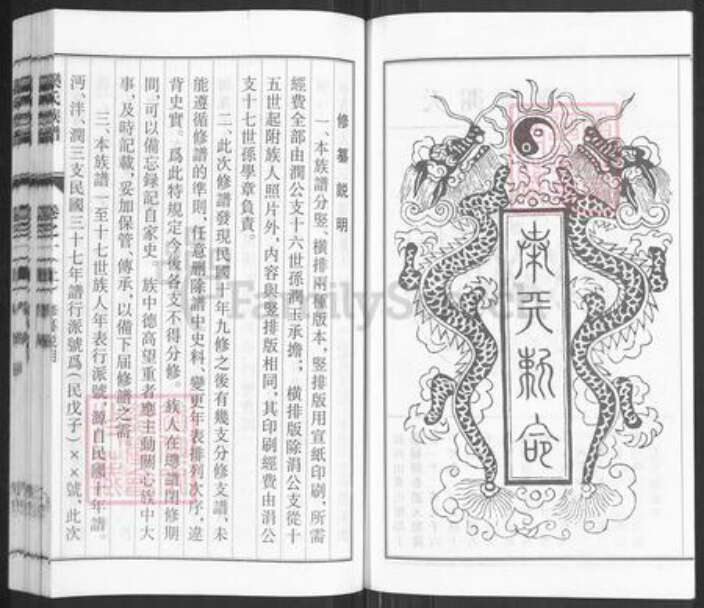 奉天敕命
修纂説明
一、本族譜分竪、橫排兩種版本，竪排版用宣紙印刷，所需
經費全部由潤公支十六世孫潤玉承擔；橫排版除涓公支從十
五世起附族人照片外，内容與竪排版相同，其印刷經費由涓公
支十七世孫學章負責。
二、此次修譜發現民國十年九修之後有幾支分修支譜、未
能遵循修譜的準則，任意删除譜中史料、變更年表排列次序，違
背史實。爲此特規定今後各支不得分修。族人在總譜閉修期
間，可以備忘録記自家史 族中德高望重者應主動關心族中大
事，及時記載，妥加保管、傳承，以備下届修譜之需。
三、本族譜一至十七世族人年表行派號，源自民國十年譜。
沔、泮、潤三支民國三十七年譜行派號爲（民戊子）××號，此次
氏族譜
修纂説明
FamilySearch